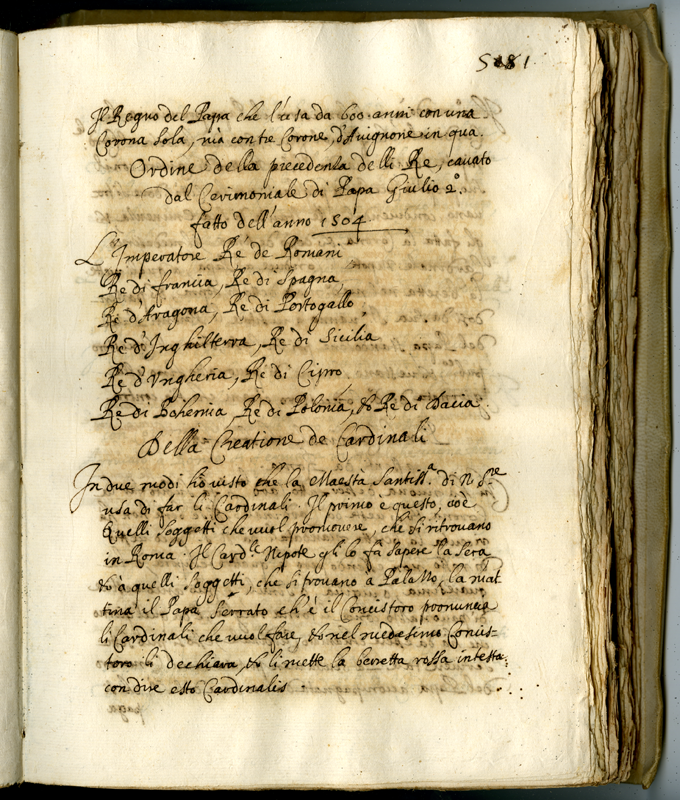 5181
Il Regno del Papa che l'usa da 600 anni con una
Corona sola, ma con tre Corone, d'Avignone in qua.
Ordine della precedenza delli Re, cavato
dal Cerimoniale di Papa Giulio 2°.
fatto dell'anno 1504
L'Imperatore Re de Romani
Re di francia, Re di Spagna,
Re d'Aragona, Re di Portogallo,
Re d'Inghilterra, Re di Sicilia
Re d'Ungheria, Re di Cipro,
Re di Bohemia, Re di Polonia, & Re di Dacia.
Della Creatione de Cardinali
In due modi hò visto che la Maestà Santiss.ª di N. S.re
usa di far li Cardinali. Il primo e questo, cioè
Quelli Soggetti che vuol promovere, che si ritrovano
in Roma. Il Card.le Nepote gli lo fà sapere la Sera
& à quelli Soggetti, che si trovano a Palazzo, la mat
tina il Papa serrato ch'è il Concistoro pronuncia
li Cardinali che vuol fare, & nel medesimo Concis=
toro li dechiara, & li mette la berretta rossa in testa:
con dire esto Cardinalis